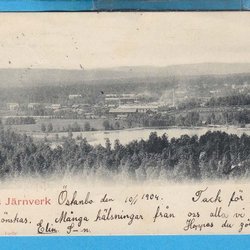 s Järnverk
Östanbo den 10/1 1904. Tack för
önskas. Många hälsningar från oss alla
Elin S-n. Hoppas du